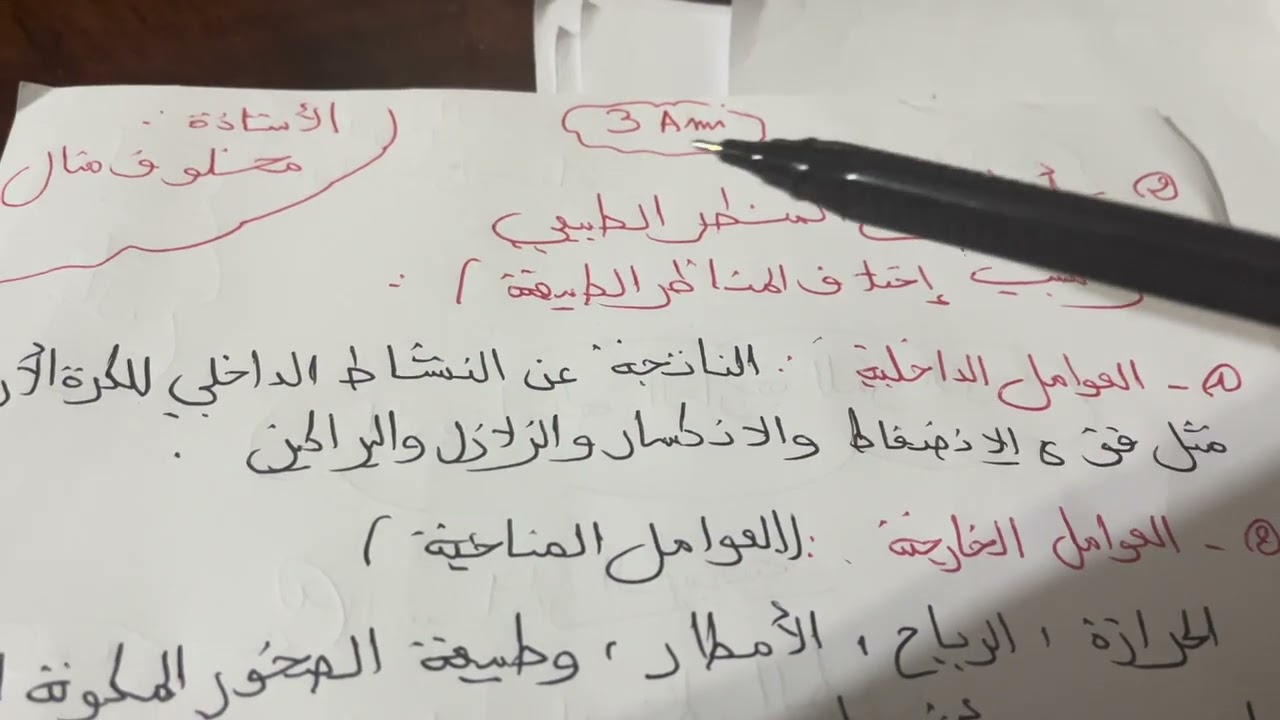 3 Ami
الأستاذة :
مخلوف منال
② -
المنظر الطبيعي
إختلاف المناظر الطبيعية ) :
① - العوامل الداخلية : الناتجة عن النشاط الداخلي للكرة
مثل قوى الانضغاط والانكسار والزلازل والبراكين .
② - العوامل الخارجية : (العوامل المناخية )
الحرارة ، الرياح ، الأمطار ، وطبيعة الصخور المكونة